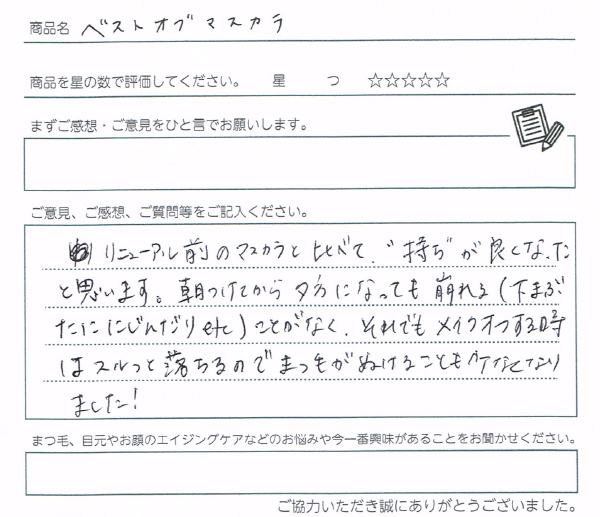 商品名 ベストオブマスカラ
商品を星の数で評価してください。 星 つ ☆☆☆☆☆
まずご感想・ご意見をひと言でお願いします。
ご意見、ご感想、ご質問等をご記入ください。
リニューアル前のマスカラと比べて、"持ち"が良くなった
と思います。朝つけてから夕方になっても崩れる(下まぶ
たににじんだりetc)ことがなく、それでもメイクオフする時
はスルっと落ちるのでまつ毛がぬけることも少なくなり
ました!
まつ毛、目元やお顔のエイジングケアなどのお悩みや今一番興味があることをお聞かせください。
ご協力いただき誠にありがとうございました。